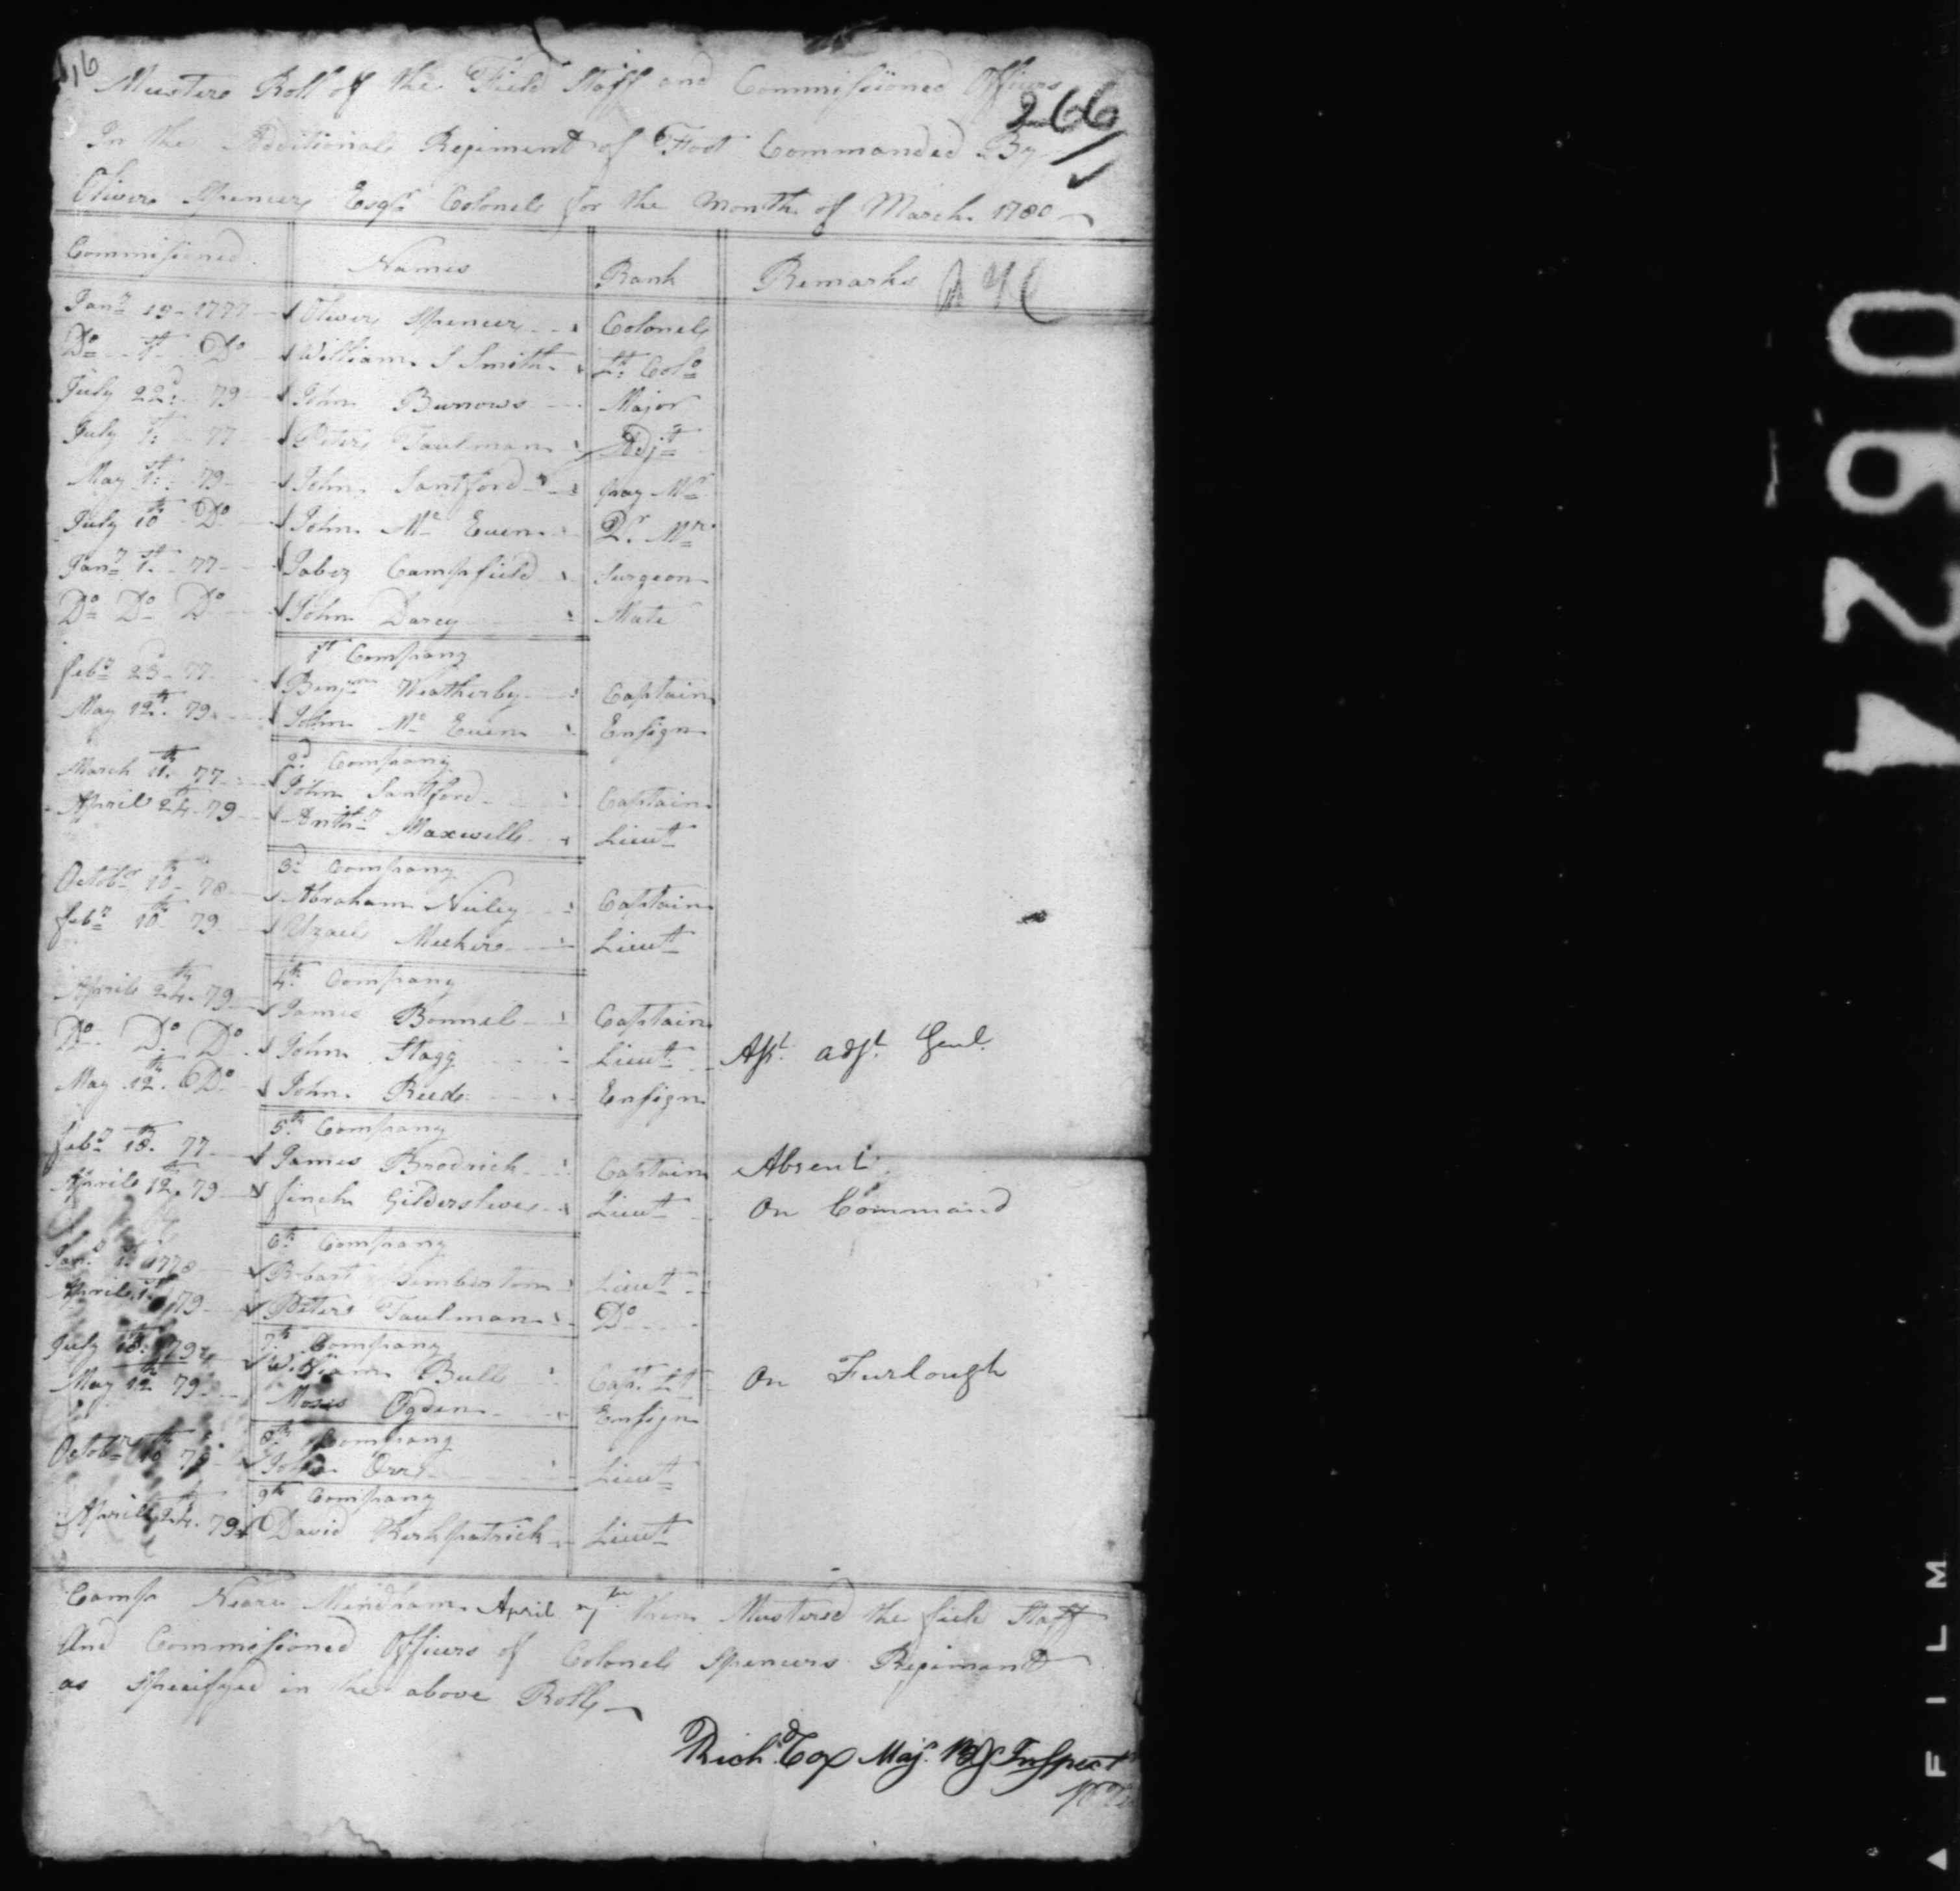 116
Musters Roll of the Field Staff and Commissioned Officers
266
In the Additional Regiment of Foot Commanded By
Oliver Spencer Esqr Colonel for the Month of March 1780
Commissioned Names Rank Remarks
Jany 19 1777 Oliver Spencer Colonel
Do Do William S Smith Lt Colo
July 22d 79 John Burrows Major
July 1t 77 Peter Taulman Adjt
May 1st 79 John Santford Pay Mr
July 10th Do John Mc Euen Qr Mr
Jany 1st 77 Jabez Campfield Surgeon
Do Do Do John Darcy Mate
1st Company
Feby 23 77 Benjmn Weatherby Captain
May 12th 79 John Mc Euen Ensign
2d Company
March 11th 77 John Santford Captain
April 24th 79 Anthy Maxwell Lieut
3d Company
Octobr 10th 78 Abraham Neiley Captain
Feby 10th 79 Uzal Meeker Lieut
4th Company
April 24th 79 James Bonnel Captain
Do Do Do John Stagg Lieut Asst adjt Genl
May 12th Do John Reed Ensign
5th Company
Feby 18th 77 James Brodrick Captain Absent
April 12th 79 Finch Gildersleve Lieut On Command
6th Company
Jany 1t 1778 Robart Pemberton Lieut
April 1t 79 Peter Taulman Do
7th Company
July 18th 79 William Bull Capt Lt On Furlough
May 12th 79 Moses Ogden Ensign
8th Company
Octobr 10th John Orr Lieut
9th Company
April 24th 79 David Kirkpatrick Lieut
Camp Near Mindham April 7th then Mustered the field Staff
And Commissioned Officers of Colonel Spencers Regiment
as Specifyed in the above Roll
Richd Cox Maj. Inspect
0824
FILM